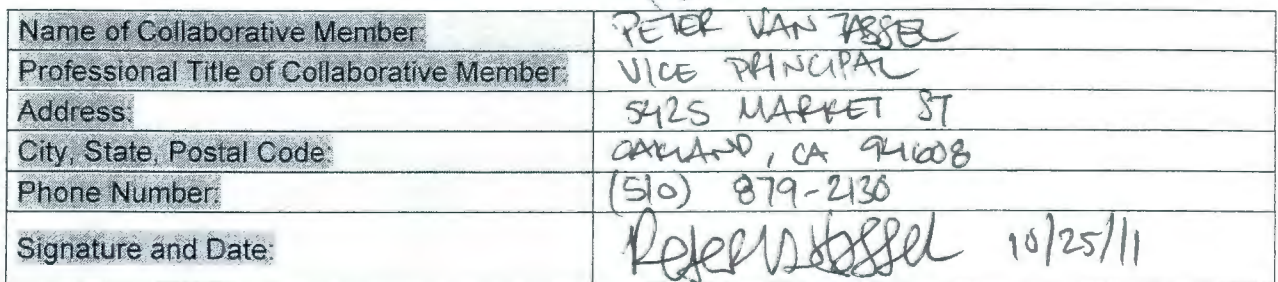 Name of Collaborative Member: PETER VAN TASSEL
Professional Title of Collaborative Member: VICE PRINCIPAL
Address: 5425 MARKET ST
City, State, Postal Code: OAKLAND, CA 94608
Phone Number: (510) 879-2130
Signature and Date: Peter Van Tassel 10/25/11